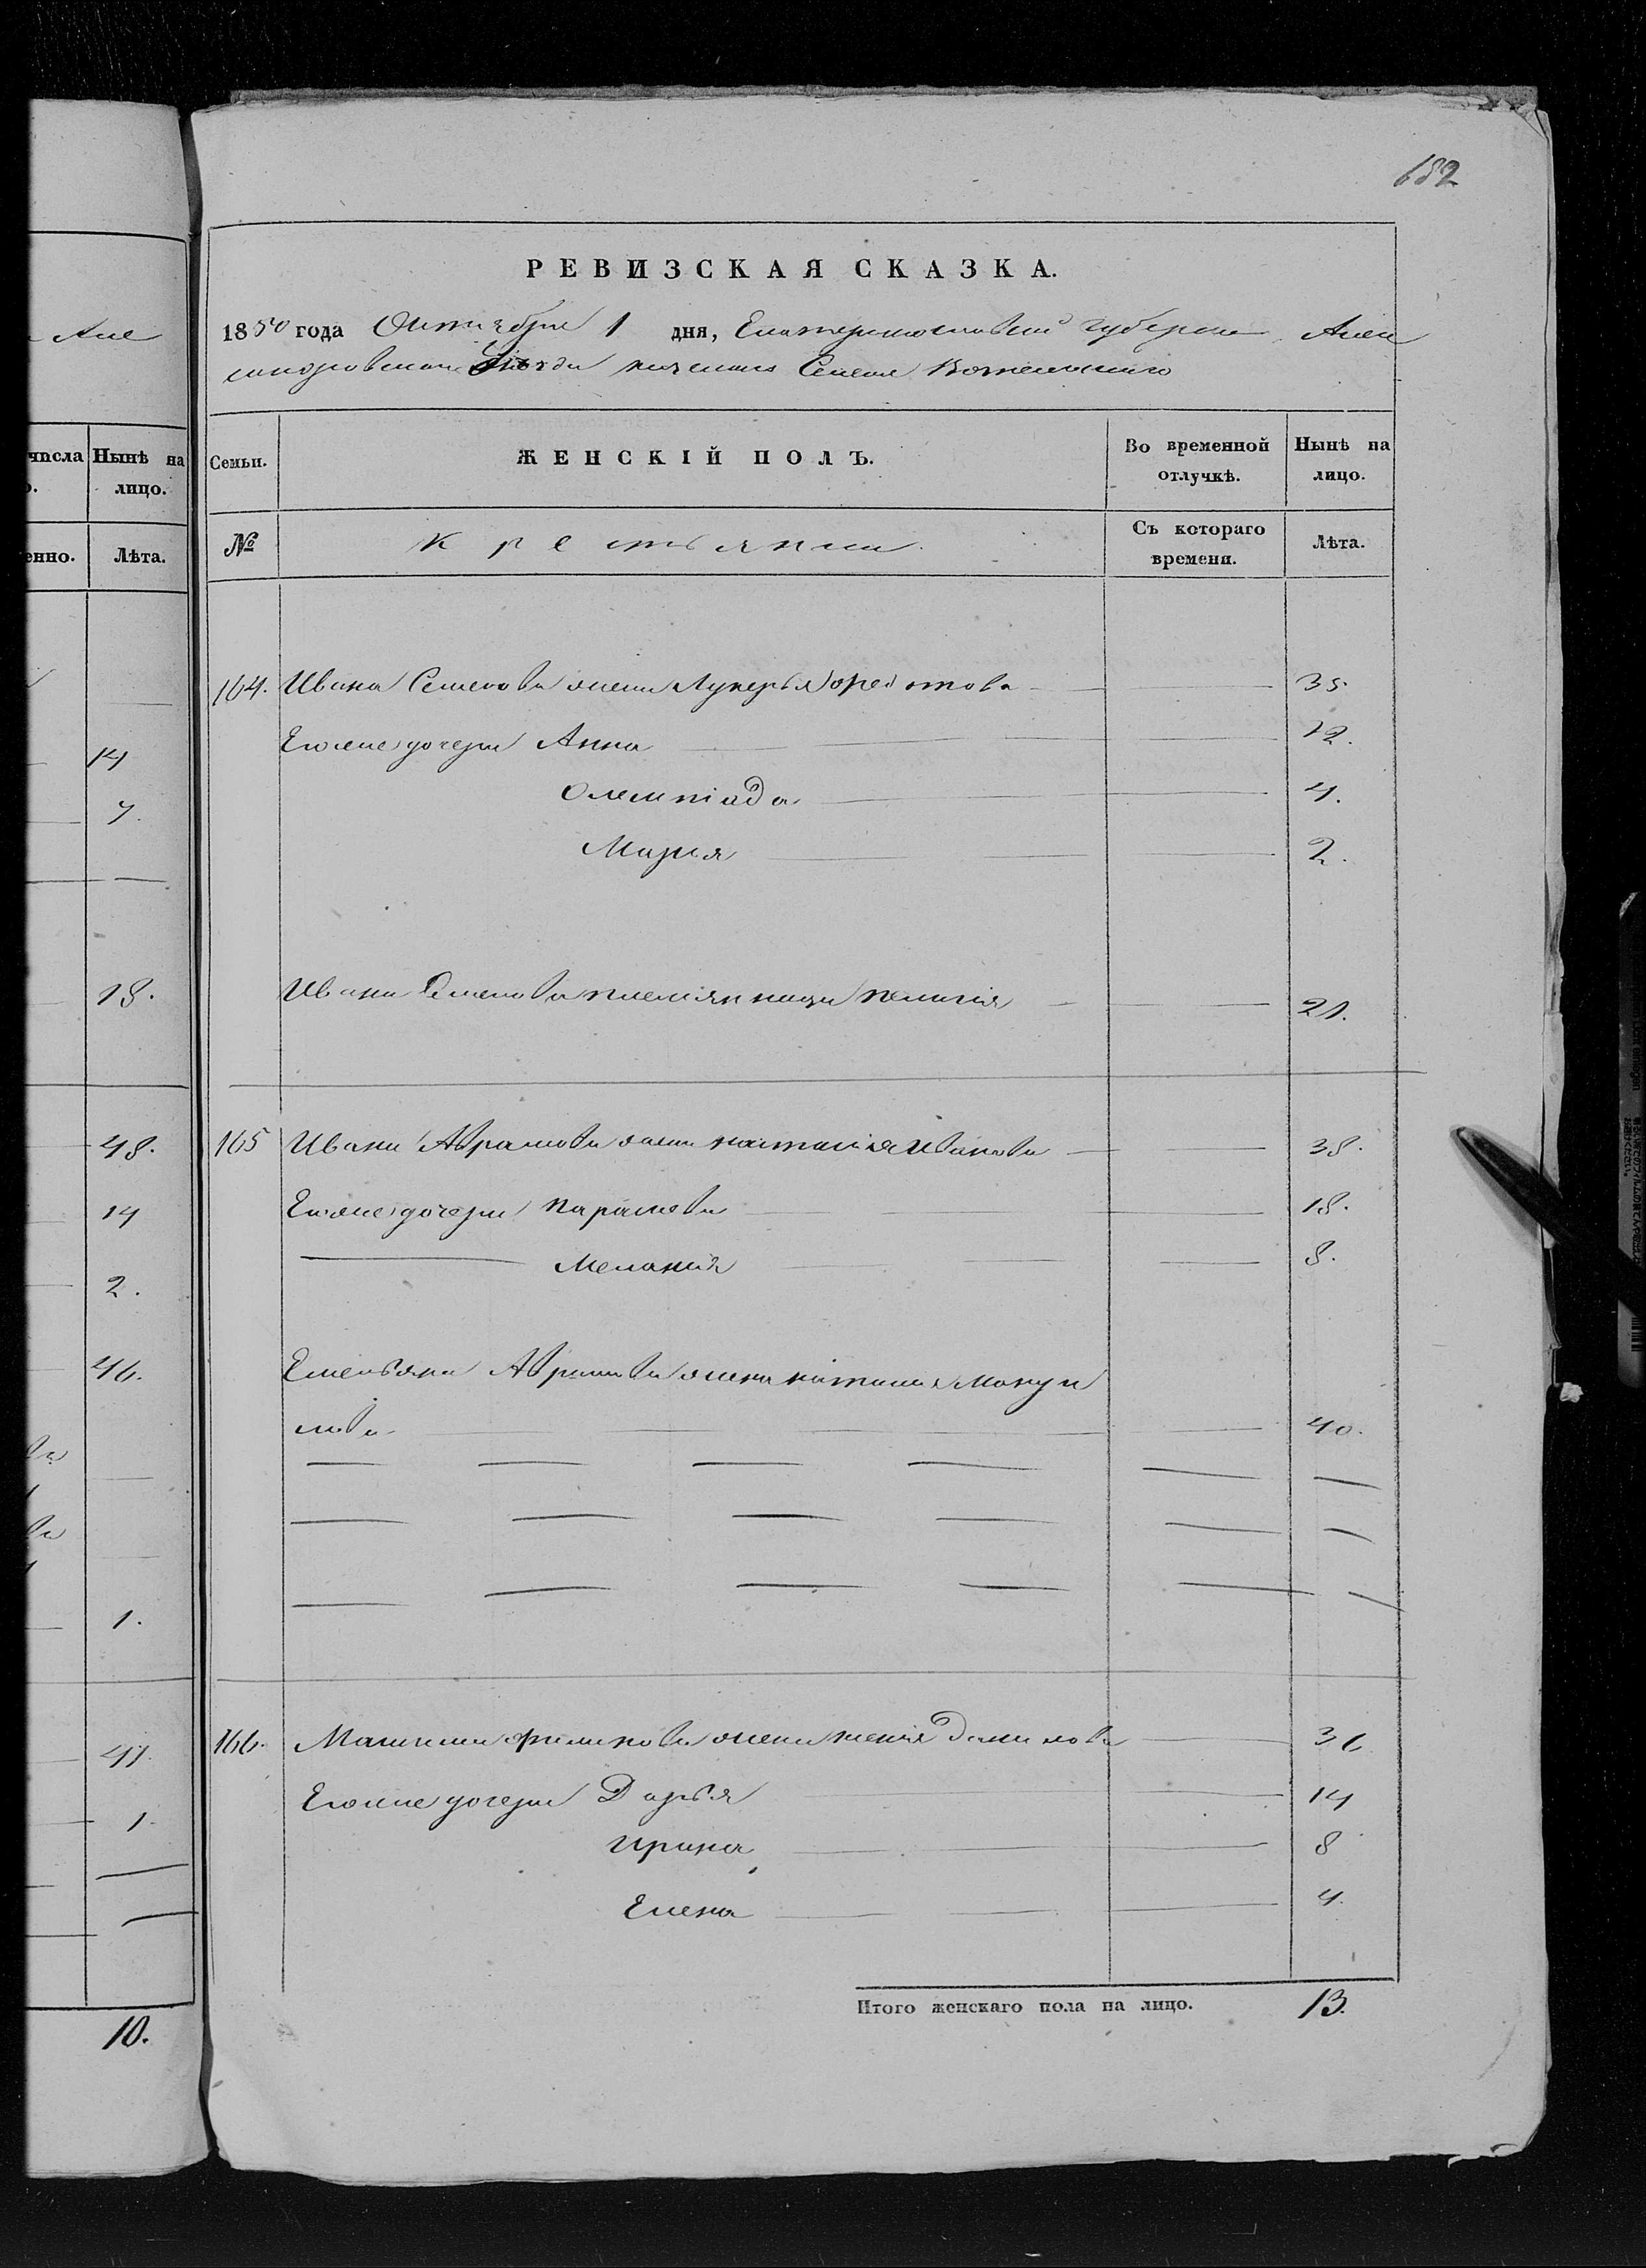 Але
числа Нынѣ на
о. лицо.
енно. Лѣта.
14
7.
18.
48.
14
2.
46.
ва
ва
1.
41.
1.
10.
652
РЕВИЗСКАЯ СКАЗКА.
1850 года Октября 1 дня, Екатеринославской губернии Алек
сандровскаго Уезда казеннаго Селения Вознесенскаго
Семьи. ЖЕНСКІЙ ПОЛЪ. Во временной отлучкѣ. Нынѣ на лицо.
№ Крестьянки Съ котораго времени. Лѣта.
164. Ивана Семенова жена Лукерья Федотова 35.
Его же дочери Анна 12.
Олемпіада 4.
Марья 2.
Ивана Семенова племянница 21.
165 Ивана Аврамова жена наталія Иванова 38.
Его же дочери парасковья 18.
Меланія 8.
Емельяна Аврамова жена наталия Ману
лова 40.
166. Максима Филипова жена Данилова 36
Его же дочери Дарья 14
Ирина 8
Елена 4.
Итого женскаго пола на лицо. 13.